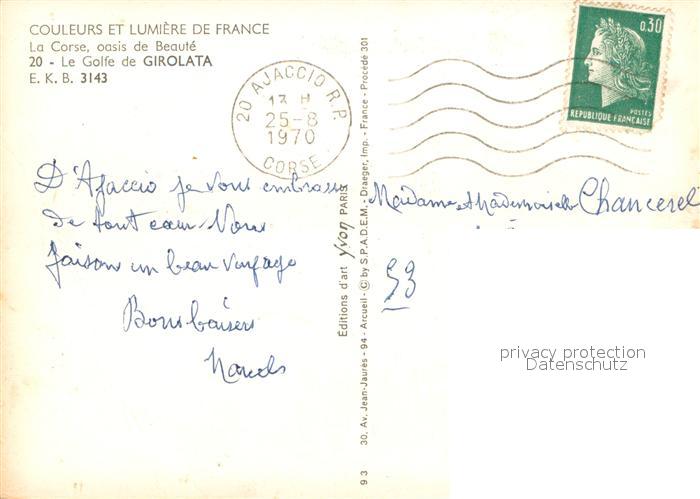 COULEURS ET LUMIÈRE DE FRANCE
La Corse, oasis de Beauté
20 - Le Golfe de GIROLATA
E. K. B. 3143
20 AJACCIO R.P.
13 H
25-8
1970
CORSE
0,30
POSTES
REPUBLIQUE FRANÇAISE
D'Ajaccio je vous embrasse
de tout cœur. Nous
faisons un beau voyage
Bons baisers
Madame et Mademoiselle Chancerel
53
Éditions d'art yvon PARIS
30, Av. Jean-Jaurès - 94 - Arcueil - © by S.P.A.D.E.M. - Draeger, Imp. - France - Procédé 301
9 3
privacy protection
Datenschutz